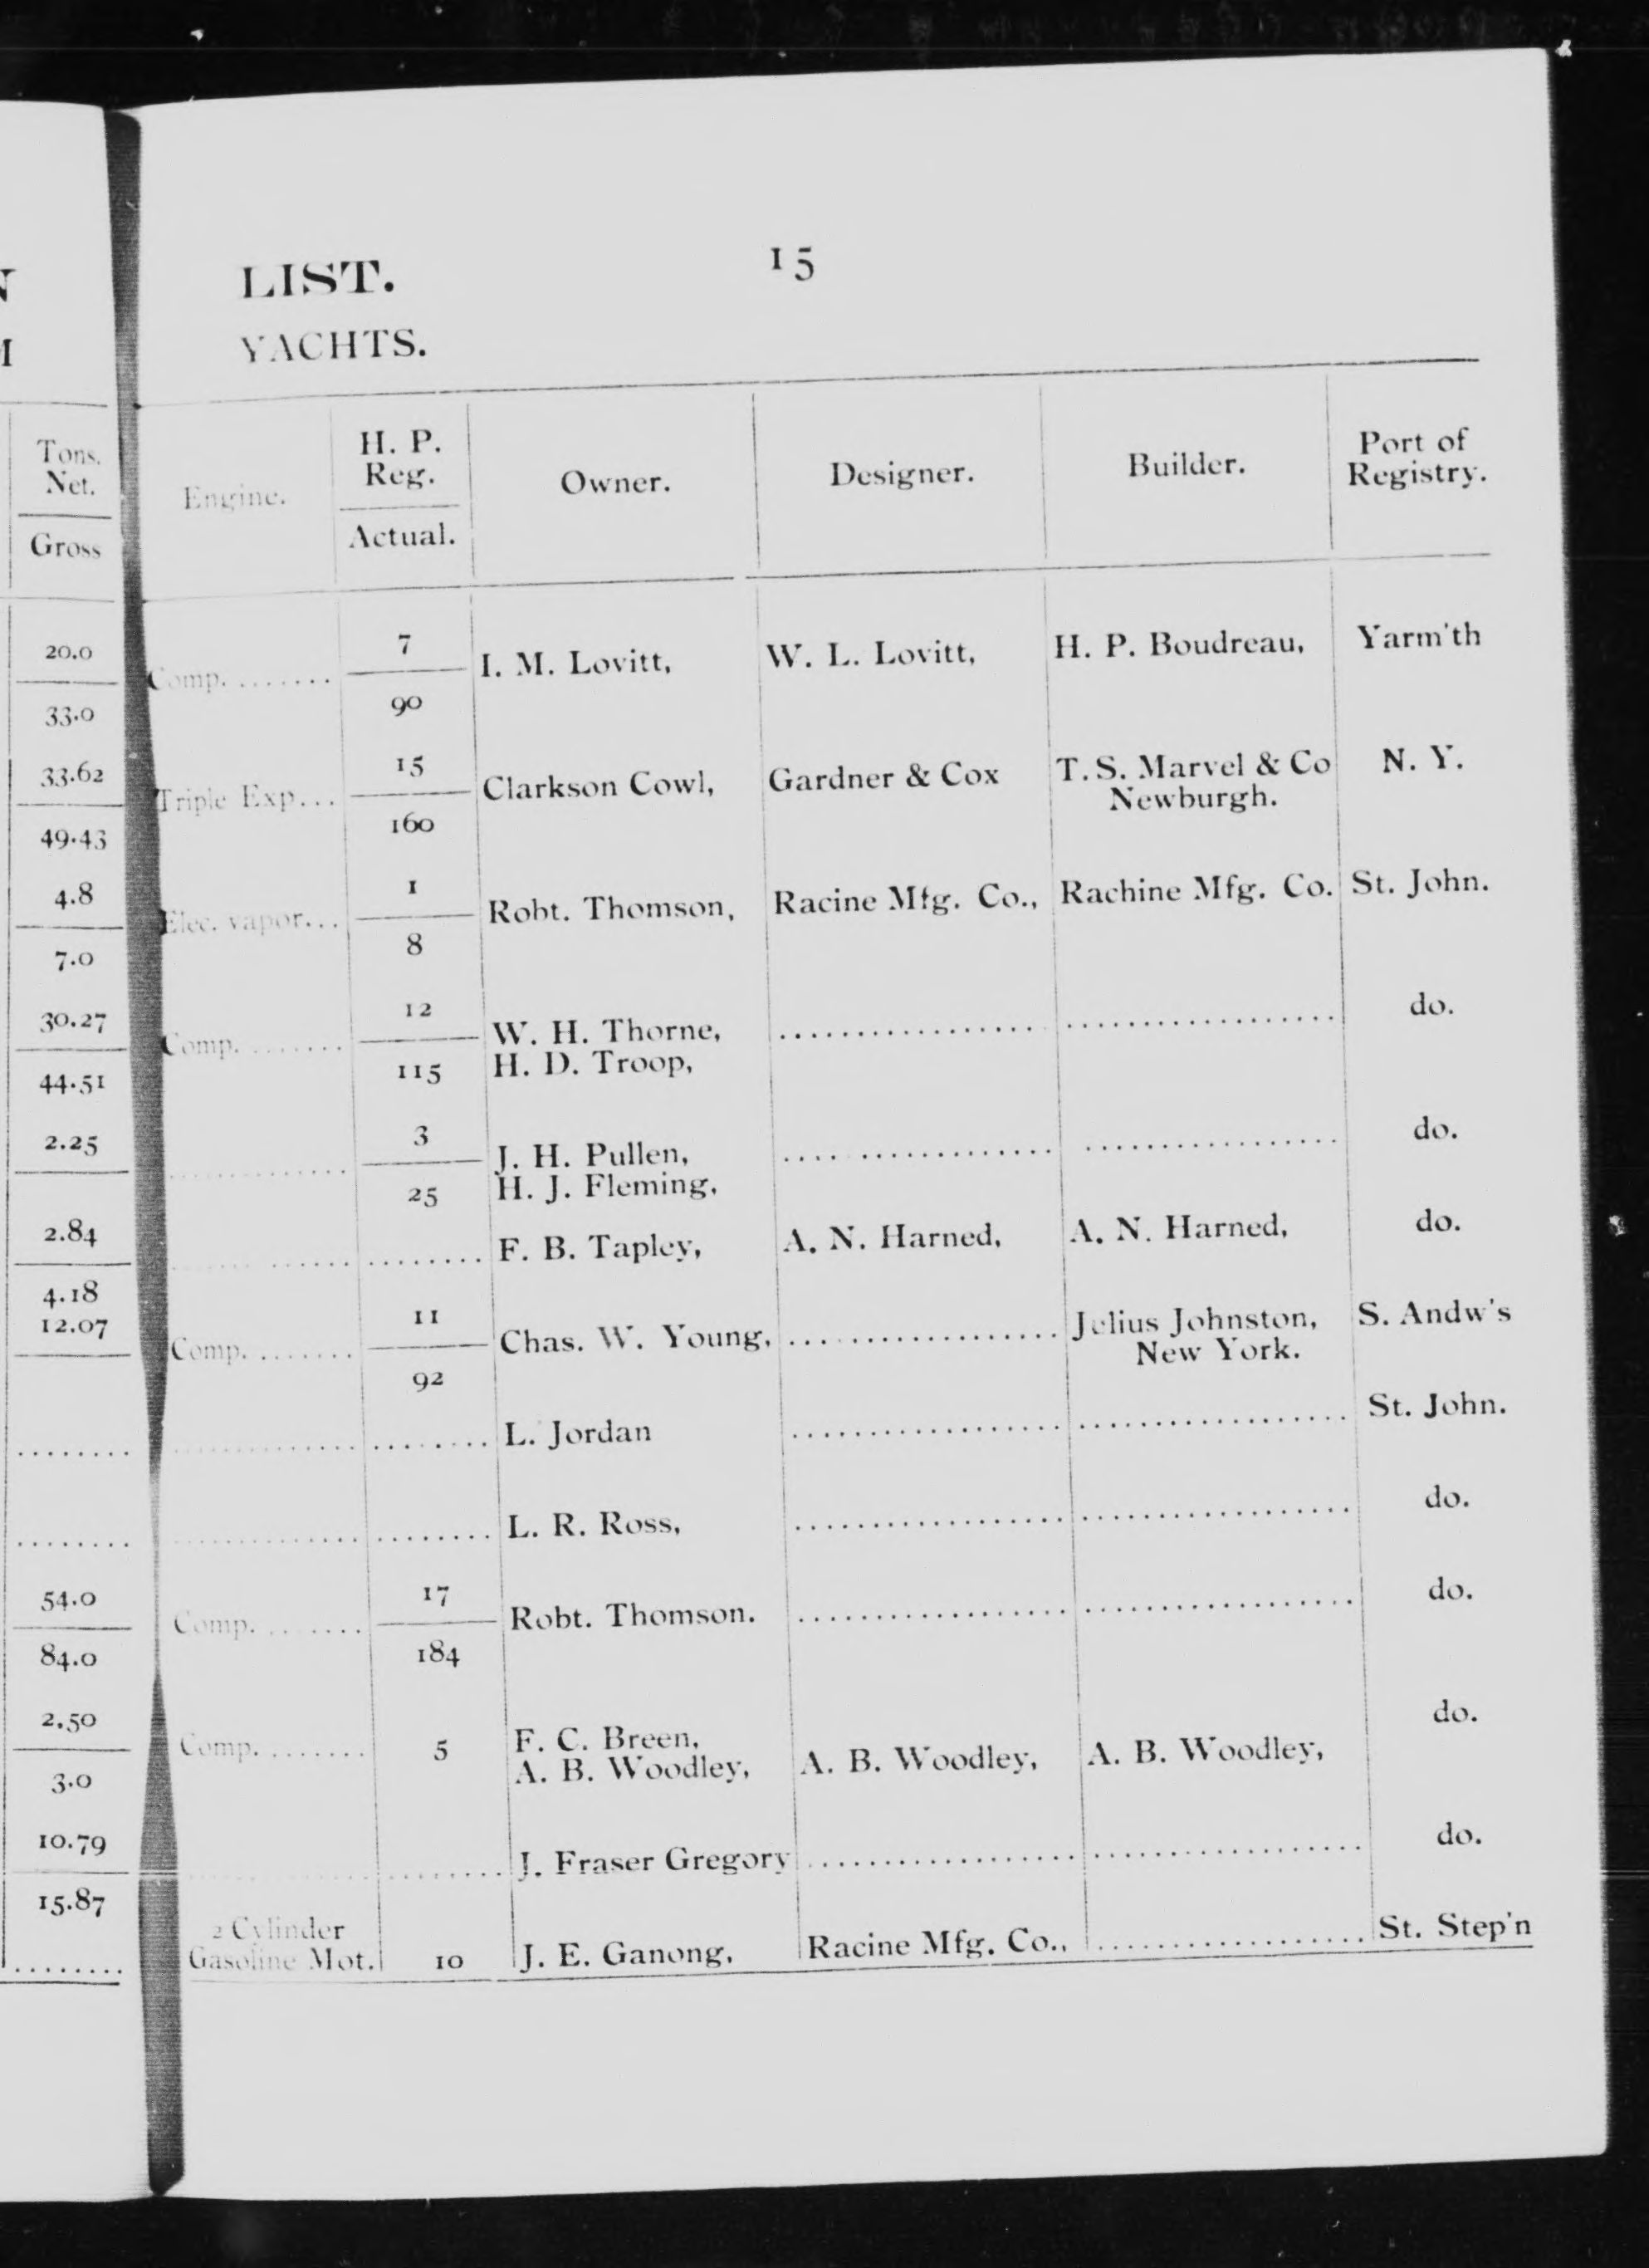 LIST. 15
YACHTS.
Tons.
Net.
Gross
Engine.
H. P.
Reg.
Actual.
Owner.
Designer.
Builder.
Port of
Registry.
20.0
33.0
Comp. ....... 7 I. M. Lovitt, W. L. Lovitt, H. P. Boudreau, Yarm'th
90
33.62
49.43
Triple Exp... 15 Clarkson Cowl, Gardner & Cox T. S. Marvel & Co N. Y.
160 Newburgh.
4.8
7.0
Elec. vapor... 1 Robt. Thomson, Racine Mfg. Co., Rachine Mfg. Co. St. John.
8
30.27
44.51
Comp. ....... 12 W. H. Thorne, .................. .................. do.
115 H. D. Troop,
2.25
............ 3 J. H. Pullen, .................. .................. do.
25 H. J. Fleming,
2.84
4.18
............ ........ F. B. Tapley, A. N. Harned, A. N. Harned, do.
12.07
Comp. ....... 11 Chas. W. Young, .................. Julius Johnston, S. Andw's
92 New York.
........ ............ ........ L. Jordan .................. .................. St. John.
........ ............ ........ L. R. Ross, .................. .................. do.
54.0
84.0
Comp. ....... 17 Robt. Thomson. .................. .................. do.
184
2.50
3.0
Comp. ....... 5 F. C. Breen, A. B. Woodley, A. B. Woodley, do.
A. B. Woodley,
10.79
15.87
............ ........ J. Fraser Gregory .................. .................. do.
2 Cylinder
........ Gasoline Mot. 10 J. E. Ganong, Racine Mfg. Co., .................. St. Step'n